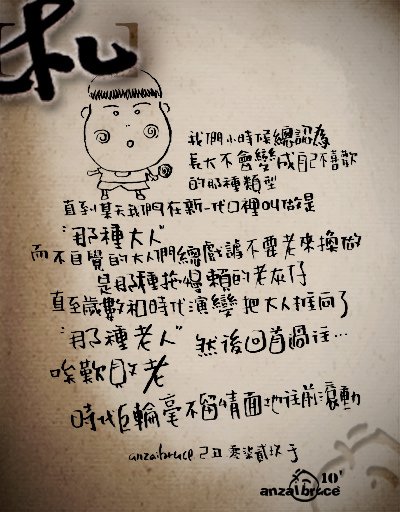 [札]
我們小時候總認為
長大不會變成自己不喜歡
的那種類型
直到某天我們在新一代口裡叫做是
"那種大人"
而不自覺的大人們總戲謔不要老來換做
是那種拖慢賴的老灰仔
直至歲數和時代演變把大人推向了
"那種老人" 然後回首過往...
唉歎敗老
時代巨輪毫不留情面地往前滾動
anzaibruce 己丑 零柒貳玖 于
10'
anzaibruce